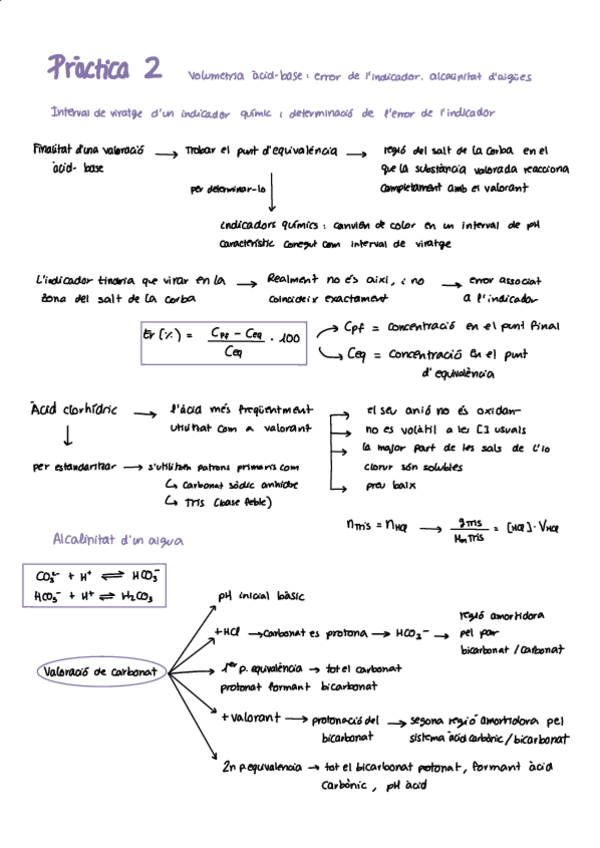 Pràctica 2 Volumetria àcid-base: error de l'indicador. alcalinitat d'aigües
Interval de viratge d'un indicador químic i determinació de l'error de l'indicador
Finalitat d'una valoració → Trobar el punt d'equivalència → regió del salt de la corba en el
àcid-base que la substància valorada reacciona
per determinar-lo completament amb el valorant
indicadors químics: canvien de color en un interval de pH
característic conegut com interval de viratge
L'indicador tindria que virar en la → Realment no és així, i no → error associat
zona del salt de la corba coincideix exactament a l'indicador
Er (%) = (Cpf - Ceq) / Ceq · 100
Cpf = concentració en el punt final
Ceq = concentració en el punt
d'equivalència
Àcid clorhídric → l'àcid més freqüentment
utilitzat com a valorant
el seu anió no és oxidan
no es volàtil a les [] usuals
la major part de les sals de l'io
clorur són solubles
preu baix
per estandaritzar → s'utilitzen patrons primaris com
↳ carbonat sòdic anhidre
↳ Tris (base feble)
nTris = nHCl → gTris / MmTris = [HCl] · VHCl
Alcalinitat d'un aigua
CO₃²⁻ + H⁺ ⇌ HCO₃⁻
HCO₃⁻ + H⁺ ⇌ H₂CO₃
Valoració de carbonat
pH inicial bàsic
+HCl → carbonat es protona → HCO₃⁻ → regió amortidora
pel par
bicarbonat / carbonat
1er p. equivalència → tot el carbonat
protonat formant bicarbonat
+ valorant → protonació del → segona regió amortidora pel
bicarbonat sistema àcid carbònic / bicarbonat
2n p.equivalencia → tot el bicarbonat potonat, formant àcid
carbònic, pH àcid